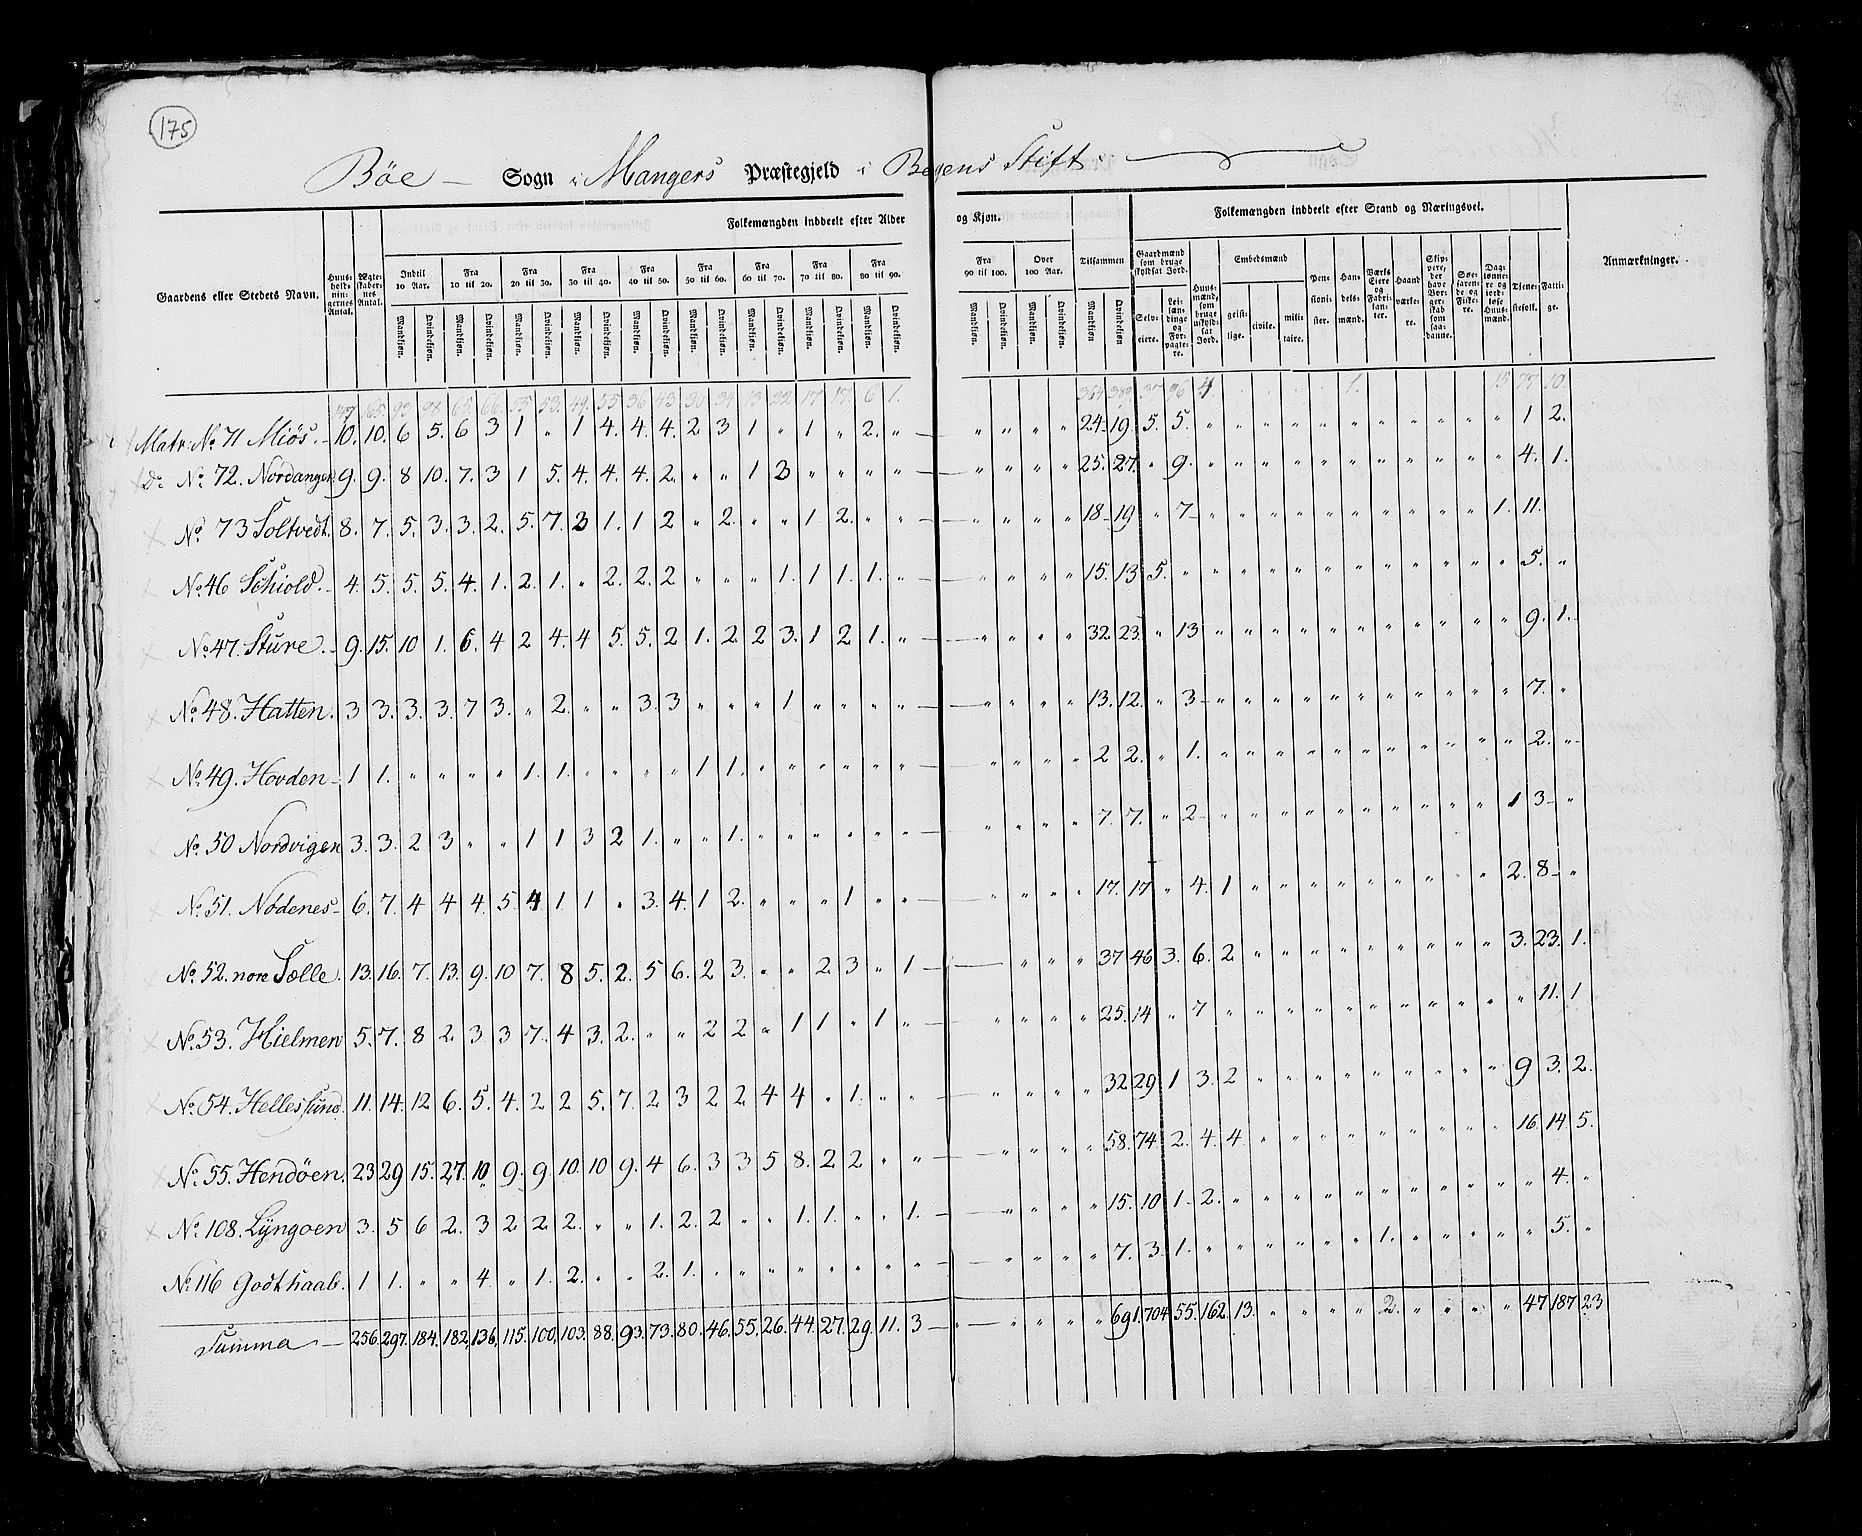 175
Böe – Sogn i Mangers Præstegjeld i Begens Stift
Folkemængden inddeelt efter Alder og Kjøn. Folkemængden inddeelt efter Stand og Næringsvei.
Gaardens eller Stedets Navn. Huusholdningernes Antal. Ægteskabernes Antal. Indtil 10 Aar. Fra 10 til 20. Fra 20 til 30. Fra 30 til 40. Fra 40 til 50. Fra 50 til 60. Fra 60 til 70. Fra 70 til 80. Fra 80 til 90. Fra 90 til 100. Over 100 Aar. Tilsammen Gaardmænd som bruge skyldsat Jord. Huusmænd, som bruge uskyldsat Jord. Embedsmænd Pensionister. Handelsmænd. Værks Eiere og Fabrikanter. Haandværkere. Skippere, der have Borgerskab som saadanne. Søefarende og Fiskere. Daglønnere og jordløse Huusmænd. Tjenestefolk. Fattige. Anmærkninger.
Mandkjøn. Qvindekjøn. Mandkjøn. Qvindekjøn. Mandkjøn. Qvindekjøn. Mandkjøn. Qvindekjøn. Mandkjøn. Qvindekjøn. Mandkjøn. Qvindekjøn. Mandkjøn. Qvindekjøn. Mandkjøn. Qvindekjøn. Mandkjøn. Qvindekjøn. Mandkjøn. Qvindekjøn. Mandkjøn. Qvindekjøn. Mandkjøn Qvindekjøn Selveiere. Leilændinge og Forpagtere. geistlige. civile. militaire.
147 165. 93. 98 65. 66. 55 53. 49. 55 36 43. 30 34 13 22 17 17. 6 1. 364 389. 37 96 4 1. 15 77 10.
Matr: No 71 Miös. 10. 10. 6 5. 6 3 1 " 1 4. 4. 4. 2 3 1 " 1 " 2. " " " " " 24 19. 5. 5. " " " " " " " " " " " 1 2.
do No 72. Nordangen 9. 9. 8 10. 7. 3 1 5. 4. 4. 4. 2. " " 1 3 " " " " " " " " 25. 27. " 9. " " " " " " " " " " " 4. 1.
No 73 Soltvedt. 8. 7. 5. 3. 3. 2. 5. 7. 3 1. 1 2 " 2. " " 1 2. " " " " " " 18 19 " 7 " " " " " " " " " " 1. 11.
No 46 Schiold. 4. 5. 5. 5. 4. 1. 2. 1. " 2. 2. 2 " " " 1. 1 1. 1. " " " " " 15. 13 5. " " " " " " " " " " " " 5. "
No 47. Sture. 9. 15. 10 1. 6. 4 2 4. 4 5. 5. 2 1. 2 2 3. 1 2 1. " " " " " 32. 23. " 13 " " " " " " " " " " " 9. 1.
No 48. Hatten. 3 3. 3. 3. 7 3. " 2. " " 3. 3 " " " 1 " " " " " " " " 13. 12. " 3 " " " " " " " " " " " 7. "
No 49. Hovden 1 1. " " " " 1. 1. " " " " 1 1. " " " " " " " " " " 2 2. " 1. " " " " " " " " " " " 2. "
No 50 Nordvigen 3. 3. 2 3 " " 1 1 3 2 1. " " 1. " " " " " " " " " " 7. 7. " 2 " " " " " " " " " " 1 3 "
No 51. Nödenes 6. 7. 4 4 4. 5. 4 1 1 " 3. 4. 1 2. " " " 1 " " " " " " 17. 17 " 4. 1 " " " " " " " " " 2. 8 "
No 52. nore Sælle. 13. 16. 7. 13. 9. 10 7. 8 5. 2. 5 6. 2 3. " " 2 3 " 1 " " " 37 46 3. 6. 2 " " " " " " " " " 3. 23. 1.
No 53. Hielmen 5. 7. 8 2. 3 3 7. 4 3. 2. " " 2 2 " 1 1 " 1 " " " " " 25. 14 " 7 " " " " " " " " " " " 11. 1
No 54. Hellessund. 11. 14. 12 6. 5. 4. 2 2 5. 7. 2 3 2 2. 4 4 " 1. " " " " " " 32 29 1 3. 2 " " " " " " " " " 9 3. 2.
No 55. Hendöen. 23 29 15. 27. 10 9. 9. 10. 10 9. 4 6. 3 3 5 8. 2 2 " " " " " " 58. 74. 2. 4. 4 " " " " " " " " " 16. 14. 5.
No 108. Lÿngoen 3. 5 6 2. 3 2 2 2. " " 1. 2. 2 " " 1. 1. " " 1. " " " " 15. 10 1 2. " " " " " " " " " " " 4. "
No 116 Godthaab. 1 1. " " 4. " 1. 2. " " 2. 1. " " " " " " " " " " " " 7. 3. 1. " " " " " " 1. " " " " " 5. "
Summa 256. 297. 184. 182. 136. 115. 100. 103. 88. 93. 73. 80. 46. 55. 26. 44. 27. 29. 11. 3 " " " " 691. 704. 55. 162. 13. " " " " " 2. " " " " 47 187 23